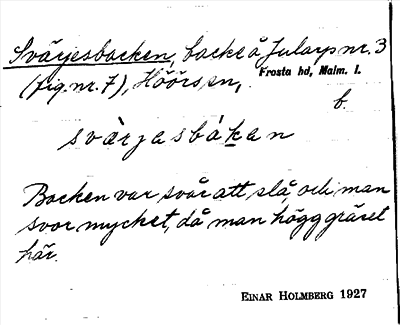 Svärjesbacken, backe å Jularp nr. 3
(fig. nr. 7), Höörs sn, Frosta hd, Malm. l.
b.
svàrjasbákan
Backen var svår att slå, och man
svor mycket, då man högg gräset
här.
EINAR HOLMBERG 1927